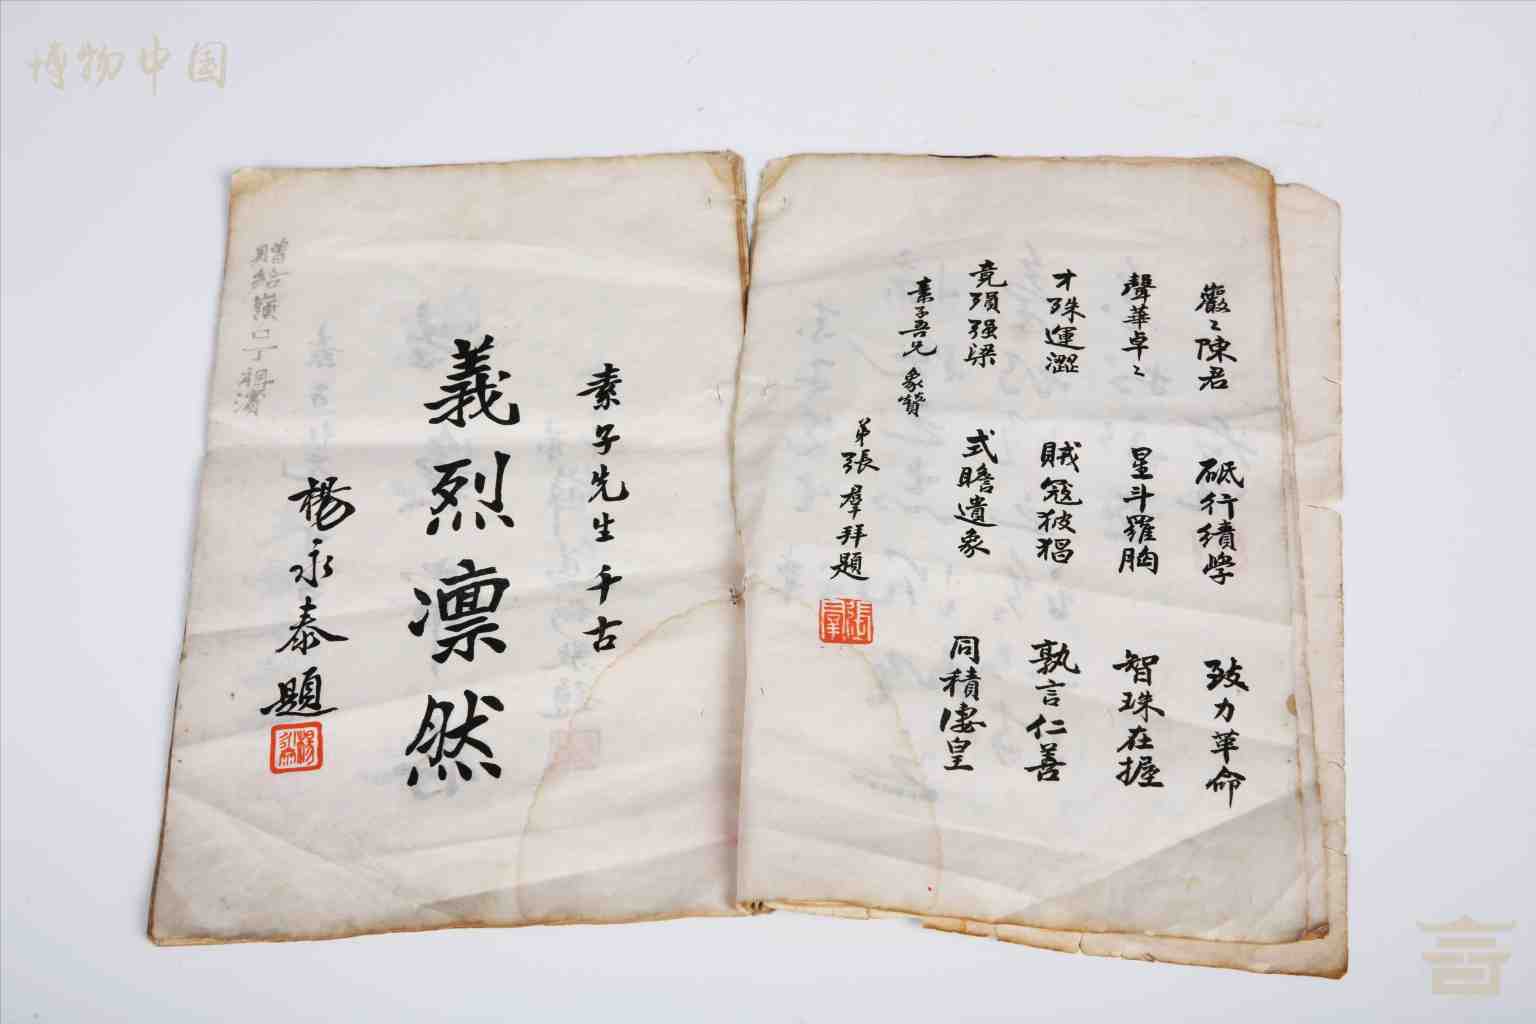 博物中国
巖〻陳君 砥行績學 致力革命
聲華卓〻 星斗羅胸 智珠在握
才殊運澀 賊寇狓猖 孰言仁善
竟殞强梁 式瞻遺象 同積悽皇
素子吾兄 象贊
弟張羣拜題
張羣
素子先生千古
義烈凛然
楊永泰題
贈給嶺口丁